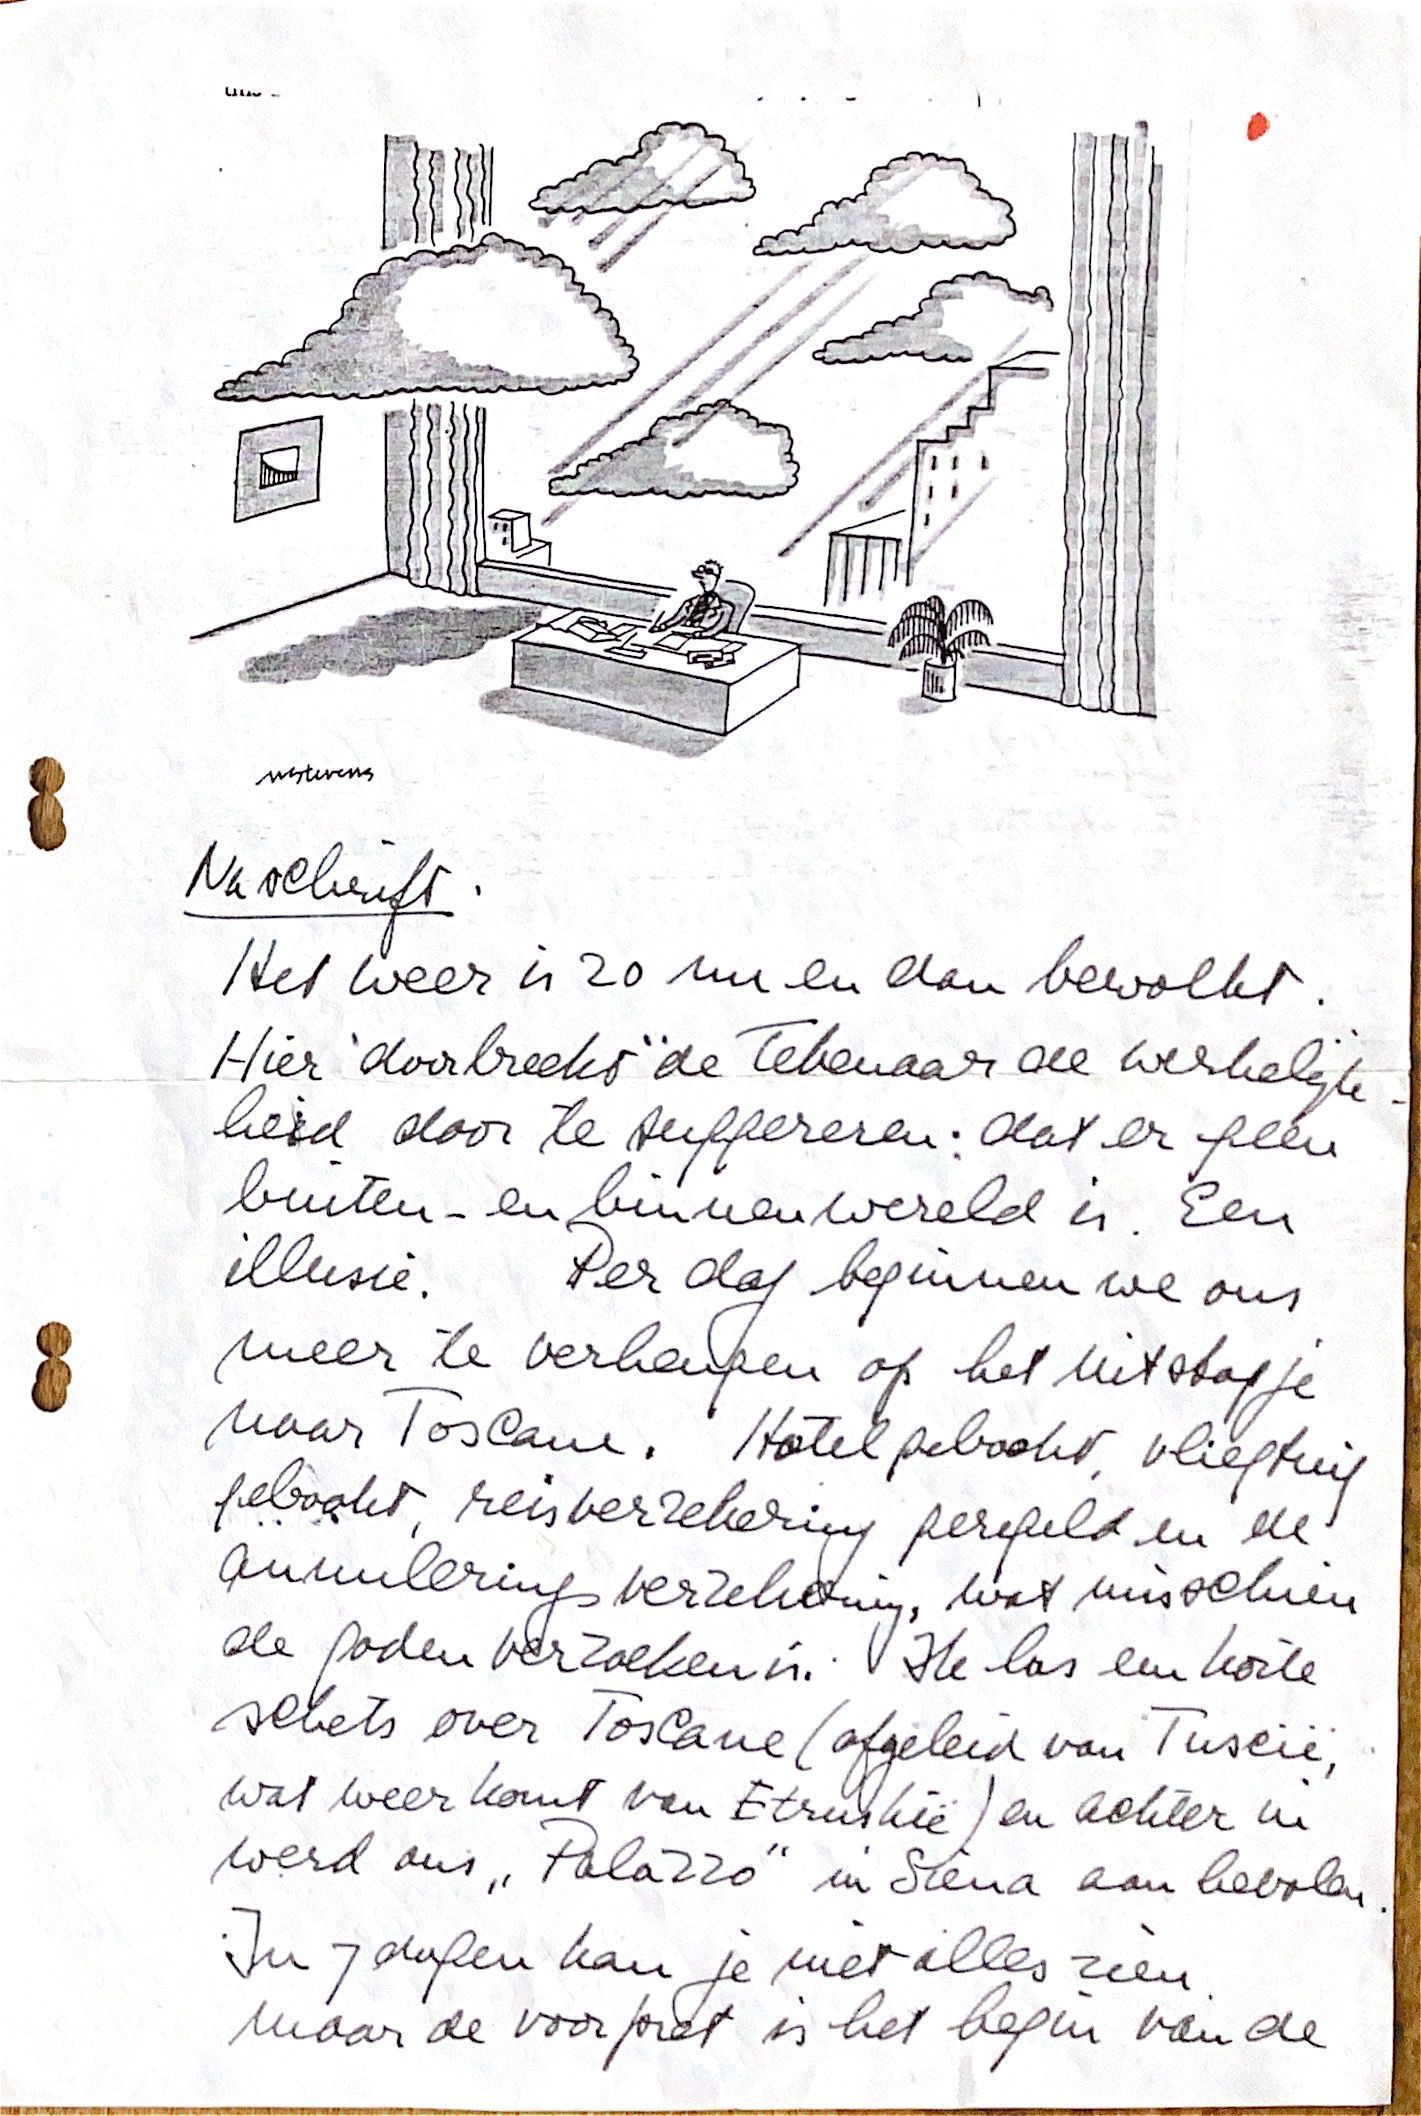 mstevens
Naschrift.
Het weer is zo nu en dan bewolkt.
Hier "doorbreekt" de tekenaar de werkelijk-
heid door te suggereren: dat er geen
buiten- en binnenwereld is. Een
illusie. Per dag beginnen we ons
meer te verheugen op het uitstapje
naar Toscane. Hotel geboekt, vliegtuig
geboekt, reisverzekering geregeld en de
annuleringsverzekering, wat misschien
de goden verzoeken is. Ik las een korte
schets over Toscane (afgeleid van Tuscië,
wat weer komt van Etruskië) en achter in
werd ons „Palazzo" in Siena aanbevolen.
In 7 dagen kan je niet alles zien
maar de voorpret is het begin van de